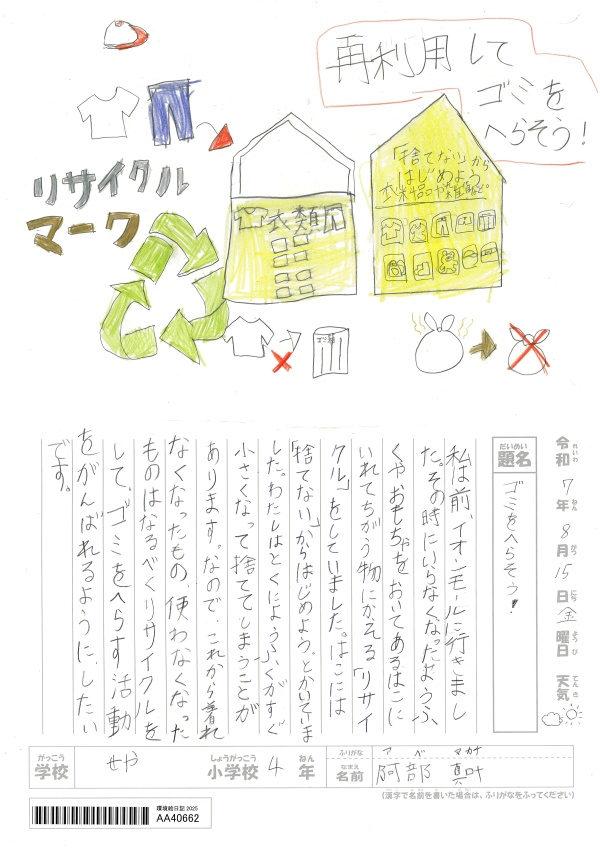 再利用して
ゴミを
へらそう!
リサイクル
マーク
衣類
「捨てない」から
はじめよう
衣米品や雑貨など。
ゴミ箱
令和7年8月15日金曜日 天気
れいわ ねん がつ にち ようび てんき
だいめい
題名
ゴミをへらそう!
私は前、イオンモールに行きまし
た。その時にいらなくなったようふ
くやおもちゃを、おいてあるはこに
いれてちがう物にかえる「リサイ
クル」をしていました。はこには
「捨てない」からはじめよう、とかいていま
した。わたしはとくにようふくがすぐ
小さくなって捨ててしまうことが
あります。なので、これから着れ
なくなったもの、使わなくなった
ものはなるべくリサイクルを
して、ゴミをへらす活動
をがんばれるようにしたい
です。
がっこう
学校
せや
しょうがっこう
小学校
4
ねん
年
ふりがな
アベ マカナ
なまえ
名前
阿部 真叶
(漢字で名前を書いた場合は、ふりがなをふってください)
環境絵日記2025
AA40662